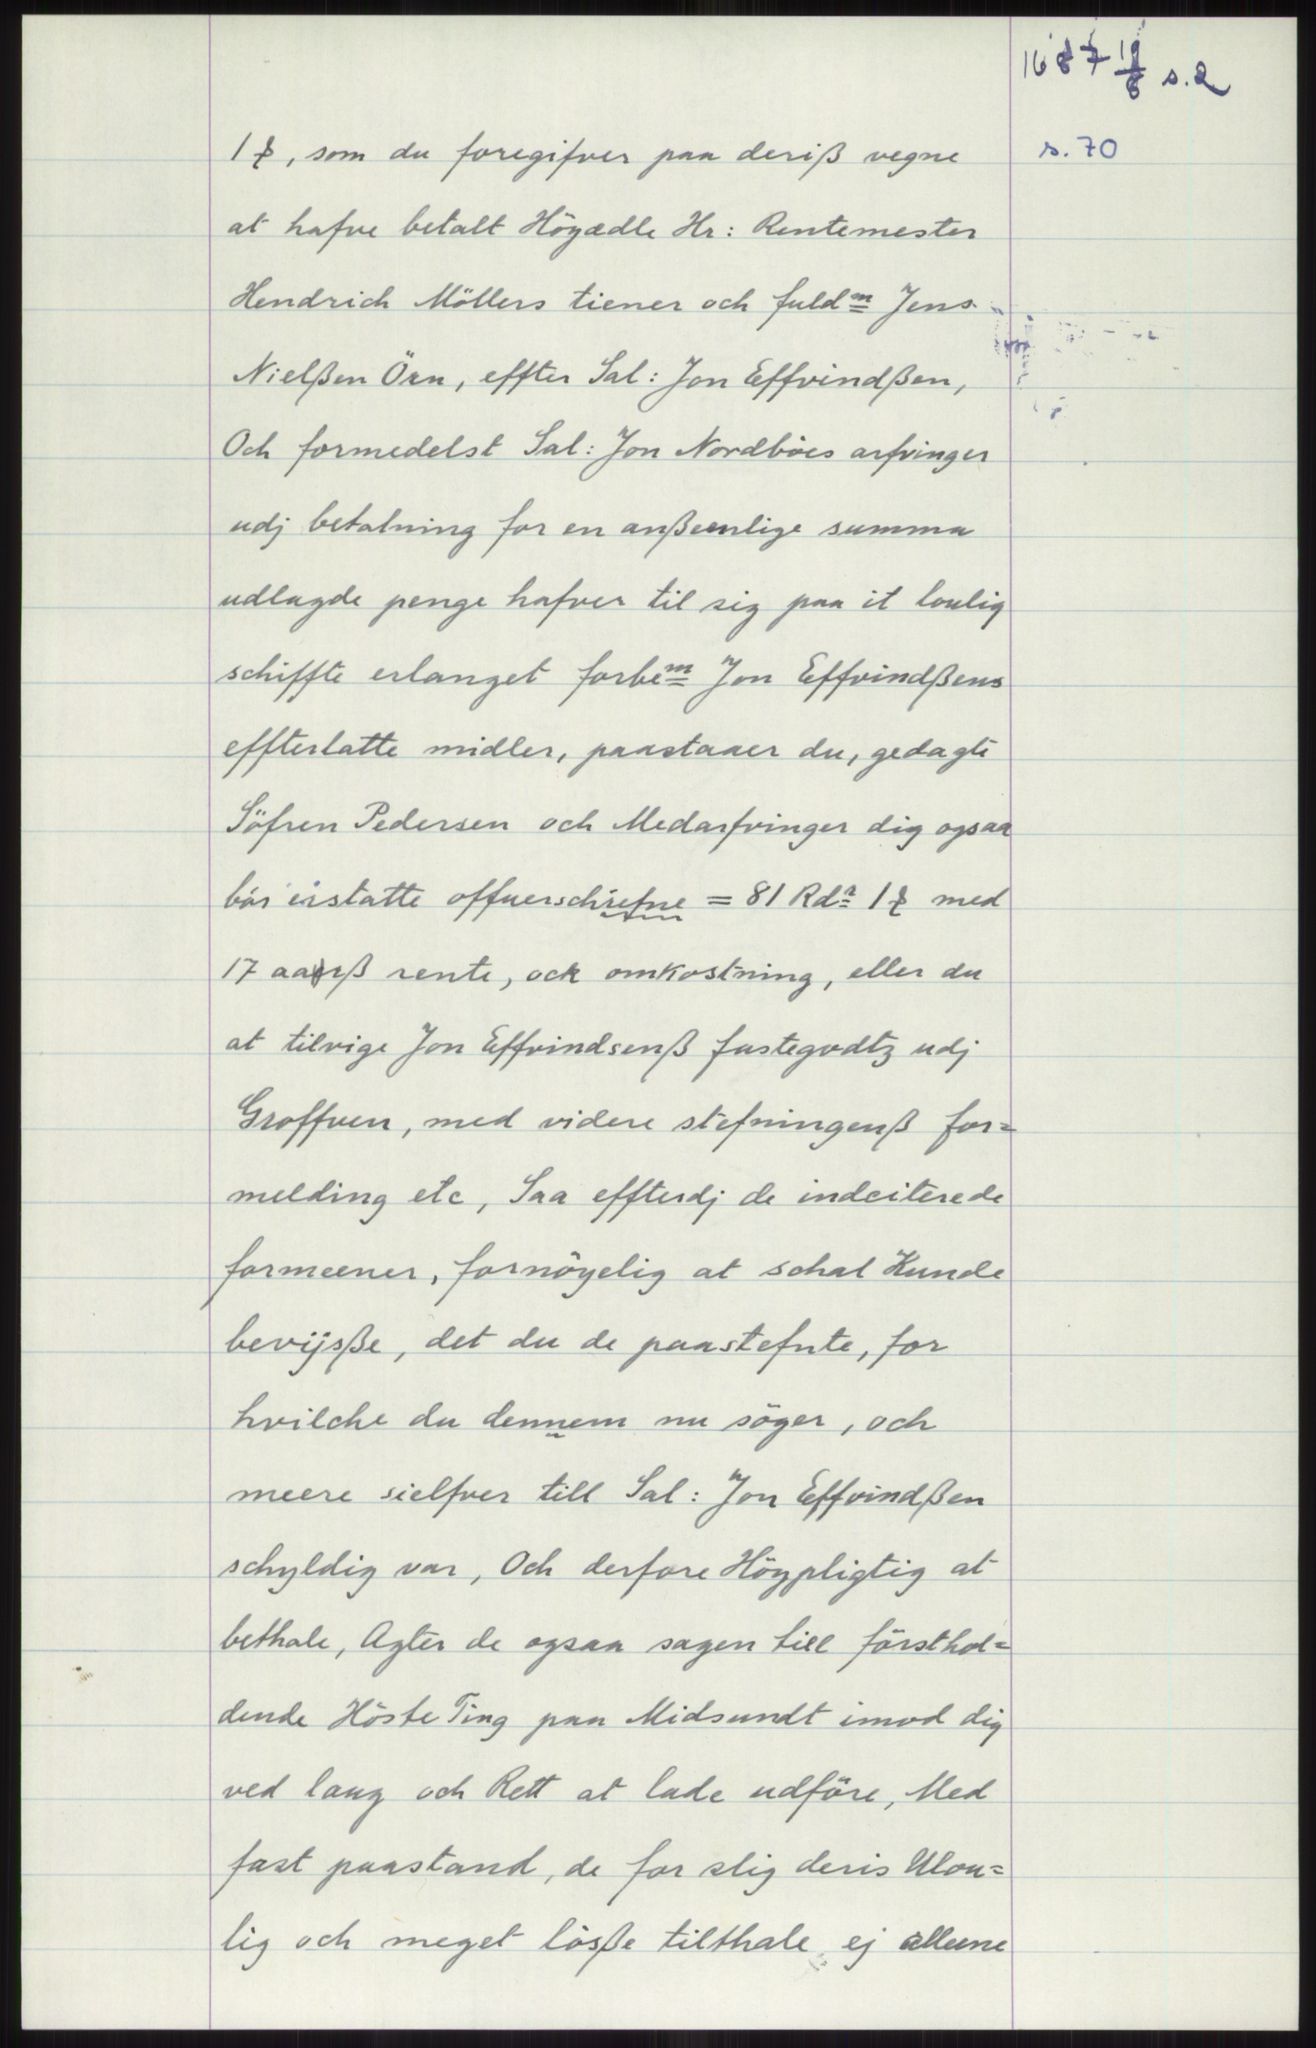 1687 19/8 s. 2
s. 70
1 ꝑ, som du foregifver paa deriß vegne
at hafve betalt Höyædle Hr: Rentemester
Hendrich Möllers tiener och fuldm Jens
Nielßen Örn, effter Sal: Jon Effvindßen,
Och formedelst Sal: Jon Nordböes arfvinger
udj betalning for en anßeenlige summa
udlagde penge hafver til sig paa it loulig
schiffte erlanget forbem Jon Effvindßens
effterlatte midler, paastaaer du, gedagte
Söfren Pedersen och Medarfvinger dig ogsaa
bör eistatte offuerschrefne = 81 Rdr 1 ꝑ med
17 aarß rente, ock omkostning, eller du
at tilvige Jon Effvindsenß fastegodtz udj
Groffven, med videre stefningenß for=
melding etc, Saa effterdj de indciterede
formeener, fornöyelig at schal Kunde
bevijsße, det du de paastefnte, for
hvilche du dennem nu söger, och
meere sielfver till Sal: Jon Effvindßen
schyldig var, Och derfore Höypligtig at
bethale, Agter de ogsaa sagen till försthol=
dende Höste Ting paa Midsundt imod dig
ved laug och Rett at lade udföre, Med
fast paastand, de for slig deris Ulou=
lig och meget lösße tilthale ej alleene